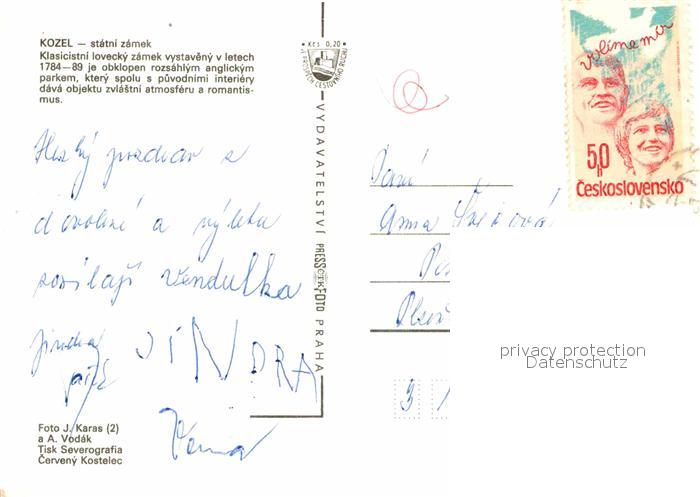 KOZEL — státní zámek
Klasicistní lovecký zámek vystavěný v letech
1784—89 je obklopen rozsáhlým anglickým
parkem, který spolu s původními interiéry
dává objektu zvláštní atmosféru a romantis-
mus.
Hezký pozdrav z
dovolené a výletu
posílají Vendulka
Jindra JINDRA
Foto J. Karas (2)
a A. Vodák
Tisk Severografia
Červený Kostelec
Kčs 0,20
VE PROSPĚCH CESTOVNÍHO RUCHU
VYDAVATELSTVÍ PRESSFOTO PRAHA
ČTK
volíme mír
50 h
Československo
Paní
Anna
3 1
privacy protection
Datenschutz